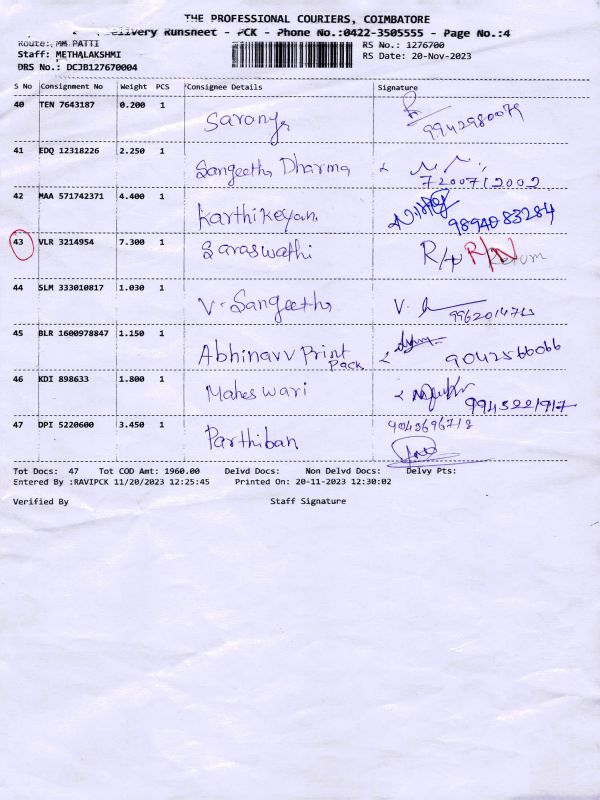 THE PROFESSIONAL COURIERS, COIMBATORE
Delivery Runsheet - PCK - Phone No.:0422-3505555 - Page No.:4
Route: MM PATTI
RS No.: 1276700
Staff: METHALAKSHMI
RS Date: 20-Nov-2023
DRS No.: DCJB127670004
S No Consignment No Weight PCS Consignee Details Signature
40 TEN 7643187 0.200 1 Saranya 9942980079
41 EDQ 12318226 2.250 1 Sangeetha Dharma 7200712002
42 MAA 571742371 4.400 1 Karthikeyan 9894083284
43 VLR 3214954 7.300 1 Saraswathi R/N Return
44 SLM 333010817 1.030 1 V. Sangeetha V.
45 BLR 1600978847 1.150 1 Abhinavv Print Pack 9042566066
46 KDI 898633 1.800 1 Maheswari
47 DPI 5220600 3.450 1 Parthiban
Tot Docs: 47 Tot COD Amt: 1960.00 Delvd Docs: Non Delvd Docs: Delvy Pts:
Entered By :RAVIPCK 11/20/2023 12:25:45 Printed On: 20-11-2023 12:30:02
Verified By Staff Signature